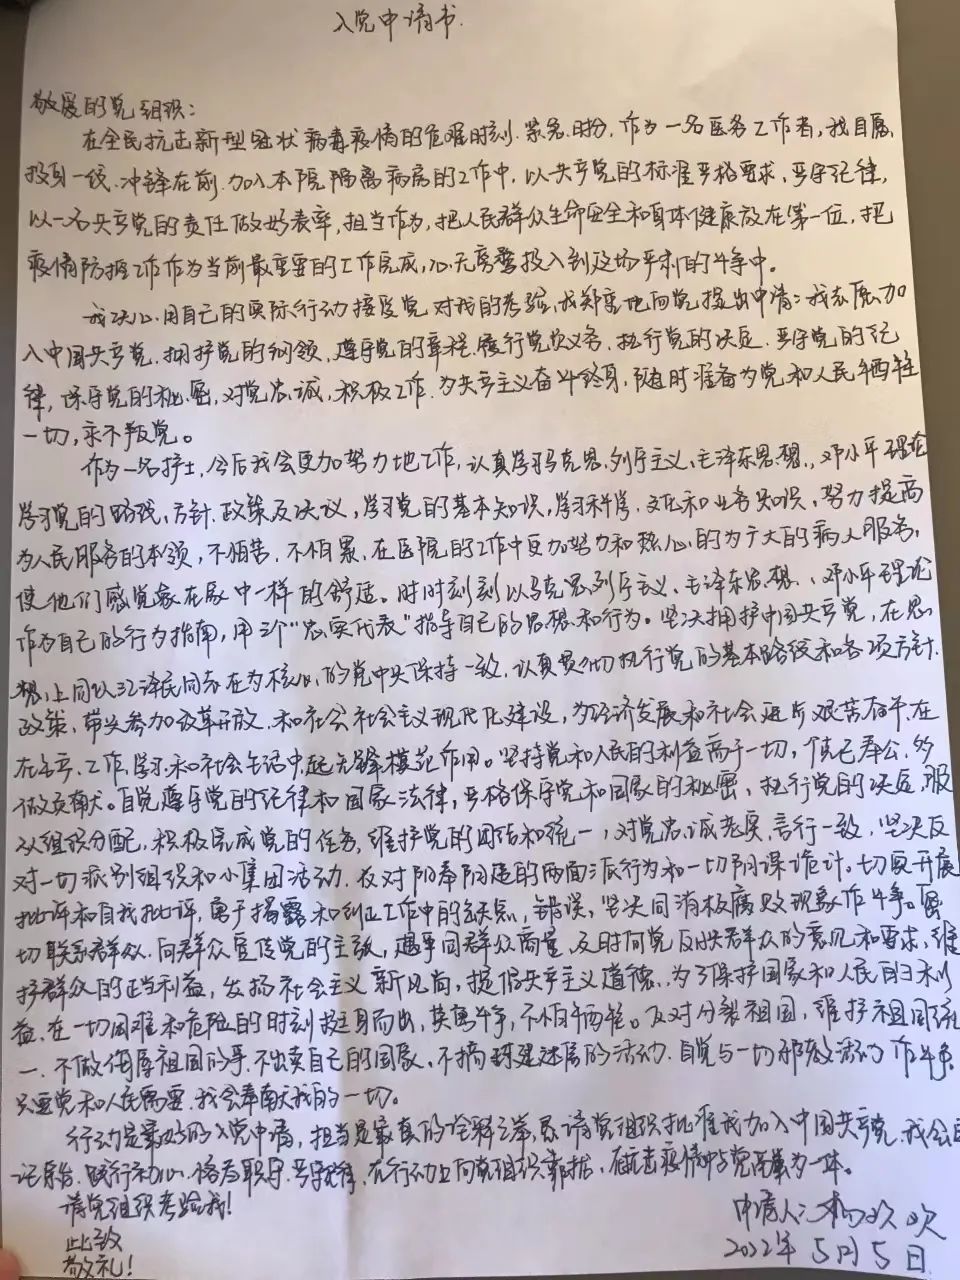 入党申请书.
敬爱的党组织:
在全民抗击新型冠状病毒疫情的危难时刻.紧急时分,作为一名医务工作者,我自愿
投身一线.冲锋在前.加入本院隔离病房的工作中,以共产党的标准严格要求,严守纪律,
以一名共产党的责任做好表率,担当作为,把人民群众生命安全和身体健康放在第一位,把
疫情防控工作作为当前最重要的工作完成,心无旁骛投入到这场严肃的斗争中。
我决心.用自己的实际行动接受党对我的考验,我郑重地向党提出申请:我志愿加
入中国共产党.拥护党的纲领,遵守党的章程.履行党员义务.执行党的决定.严守党的纪
律,保守党的秘密,对党忠诚,积极工作.为共产主义奋斗终身,随时准备为党和人民牺牲
一切,永不叛党。
作为一名护士,今后我会更加努力地工作,认真学习马克思.列宁主义、毛泽东思想、邓小平理论
学习党的路线、方针.政策及决议,学习党的基本知识,学习科学、文化和业务知识,努力提高
为人民服务的本领,不怕苦、不怕累.在医院的工作中更加努力和热心的为广大的病人服务,
使他们感觉象在家中一样的舒适。时时刻刻以马克思列宁主义、毛泽东思想、邓小平理论
作为自己的行为指南,用三个"忠实代表"指导自己的思想和行为。坚决拥护中国共产党,在思
想上同以江泽民同志在为核心的党中央保持一致,认真贯彻执行党的基本路线和各项方针.
政策,带头参加改革开放.和社会社会主义现代化建设,为经济发展和社会进步艰苦奋斗.在
在生产.工作.学习和社会生活中起先锋模范作用。坚持党和人民的利益高于一切,个克己奉公.多
做贡献。自觉遵守党的纪律和国家法律,严格保守党和国家的秘密,执行党的决定,服
从组织分配,积极完成党的任务,维护党的团结和统一,对党忠诚老实,言行一致,坚决反
对一切派别组织和小集团活动.反对阳奉阴违的两面派行为和一切阴谋诡计。切要开展
批评和自我批评,勇于揭露和纠正工作中的缺点,错误,坚决同消极腐败现象作斗争。密
切联系群众.向群众宣传党的主张,遇事同群众商量,及时向党反映群众的意见和要求,维
护群众的正当利益,发扬社会主义新风尚,提倡共产主义道德,为了保护国家和人民的利
益,在一切困难和危险的时刻挺身而出,英勇斗争,不怕牺牲。反对分裂祖国,维护祖国统
一.不做侮辱祖国的事.不出卖自己的国家、不搞封建迷信的活动.自觉与一切邪教活动作斗争.
只要党和人民需要.我会奉献我的一切。
行动是最好的入党申请,担当是最真的诠释之举,恳请党组织批准我加入中国共产党.我会
记宗旨.践行初心.恪尽职守.严守纪律,在行动上向党组织靠拢,在抗击疫情中与党
为一体。
请党组织考验我!
此致
敬礼!
申请人:杨欢欢
2022年5月5日.